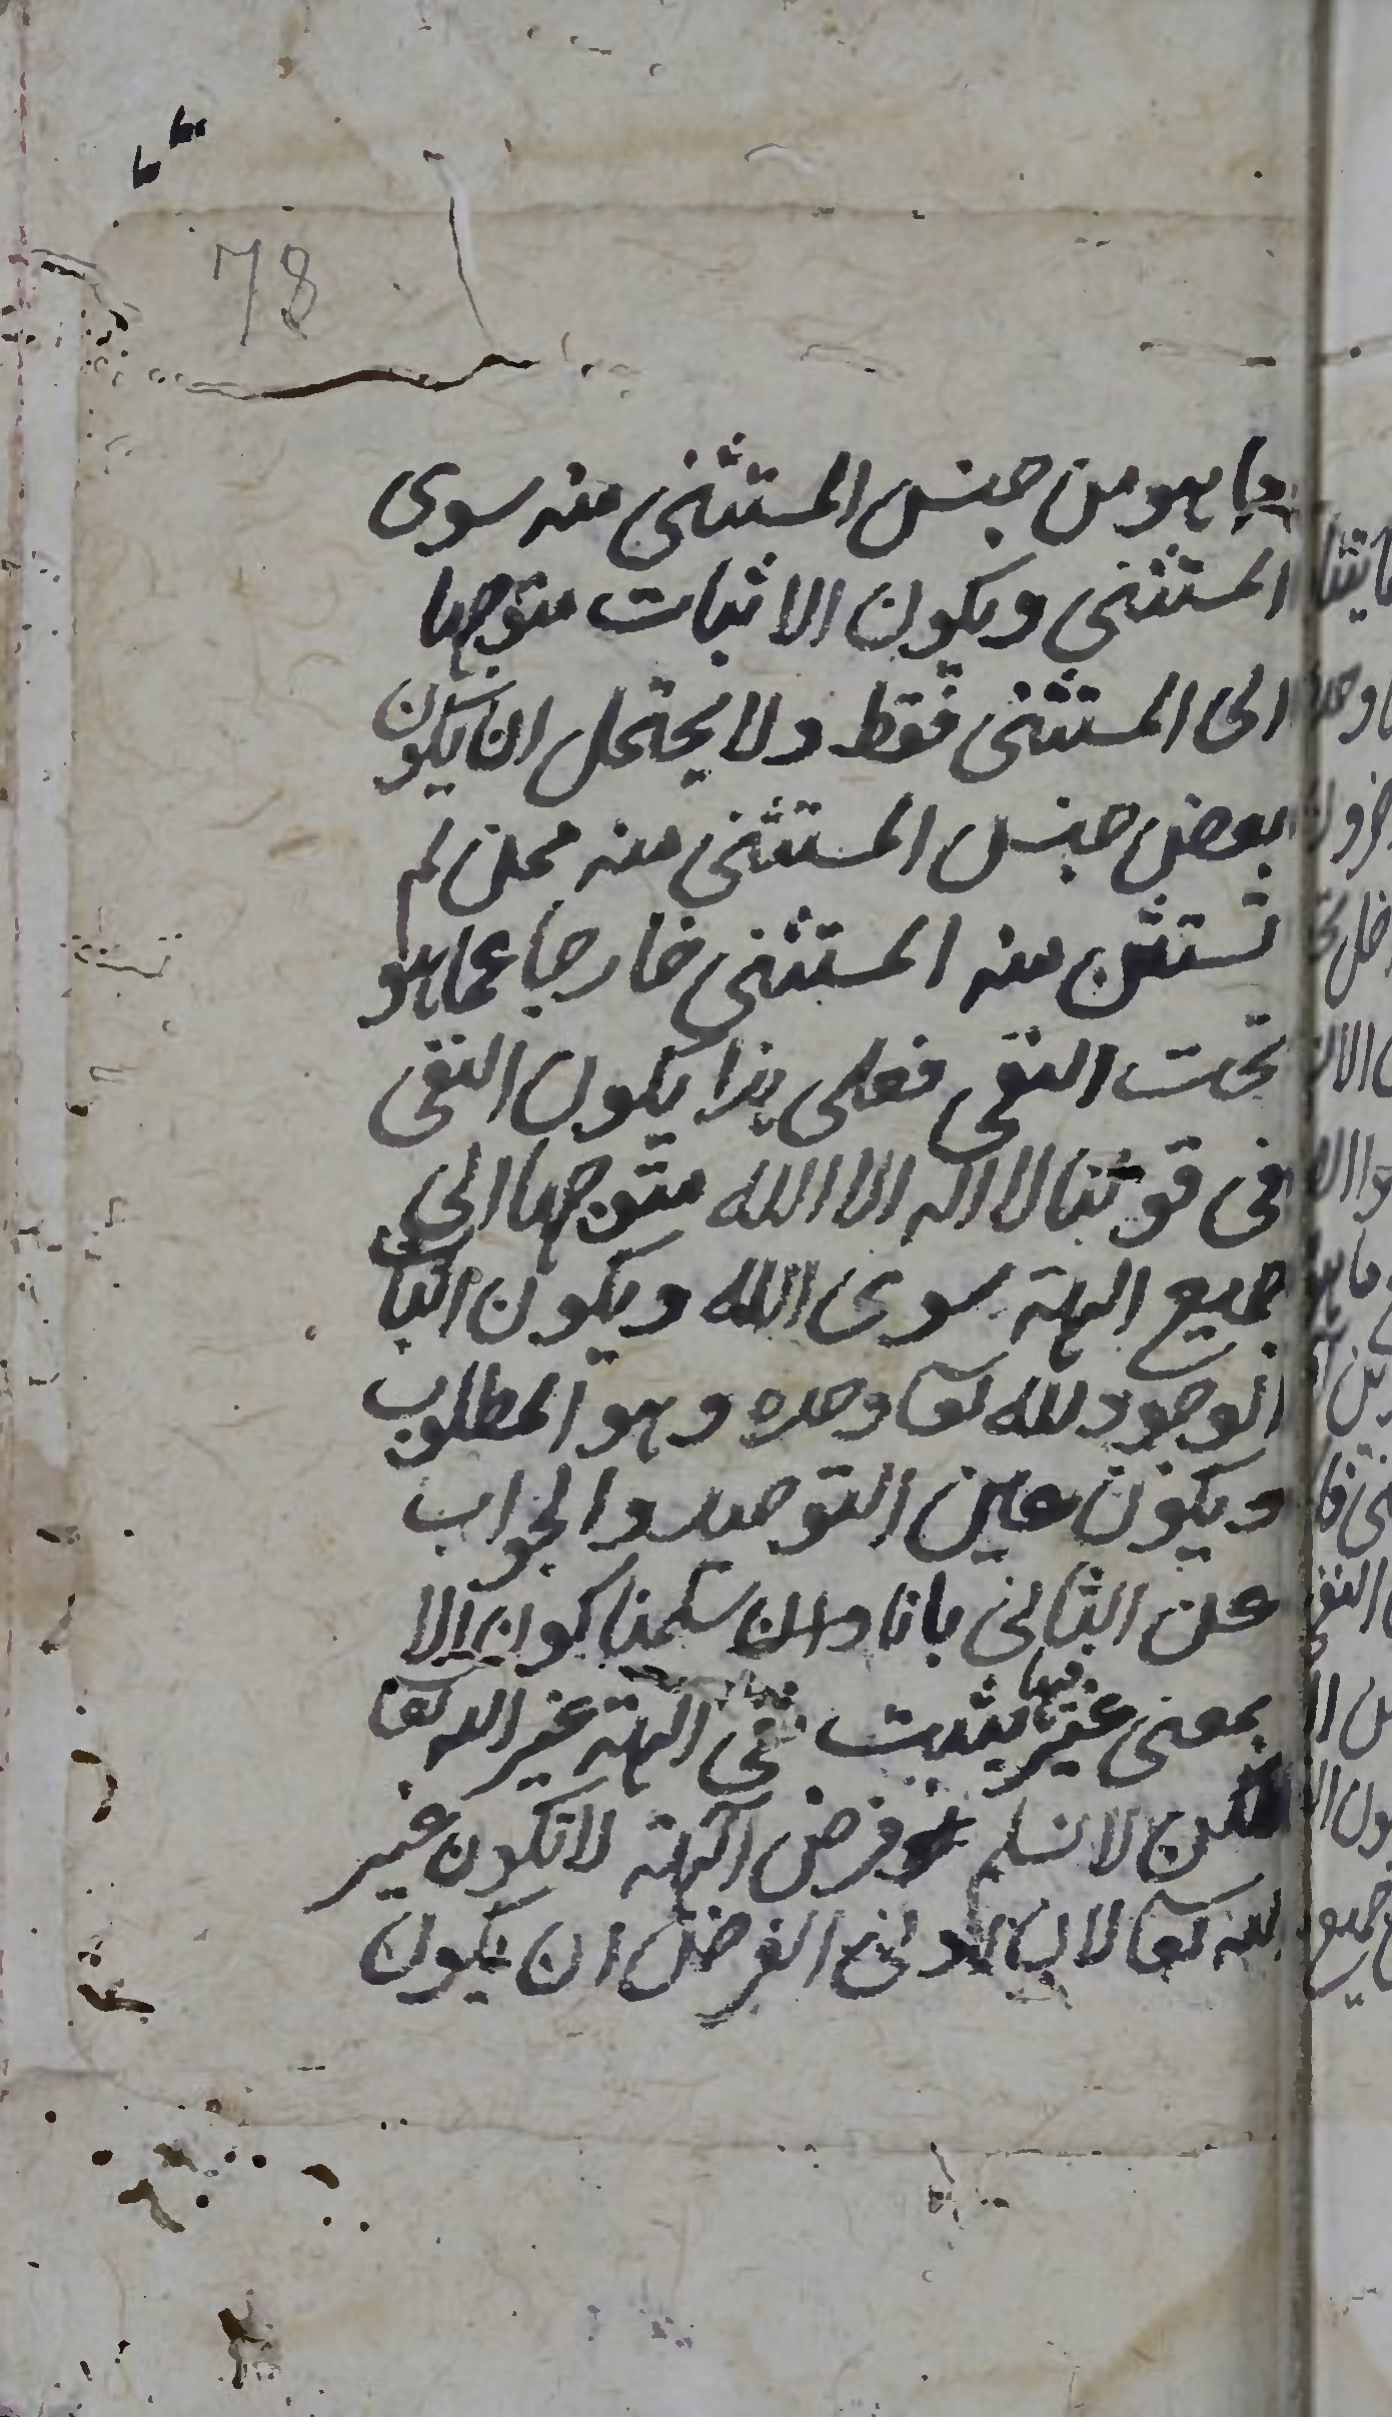 78
ما هو من جنس المستثنى منه سوى
المستثنى ويكون الاثبات متوجها
الى المستثنى فقط ولا يحتمل ان يكون
بعض جنس المستثنى منه ممن لم
تستثن منه المستثنى خارجا عما هو
تحت النفى فعلى هذا يكون النفى
فى قولنا لا اله الا الله متوجها الى
جميع الهة سوى الله ويكون اثبات
الوجود لله تعا وحده وهو المطلوب
ويكون عين التوحيد والجواب
عن الثانى بانا وان سلمنا كون الا
بمعنى غير فيها يثبت نفى الهة غير الله تعا
لكن لا نسلم فرض آلهة لا تكون غير
الله تعا لان ادنى الفرض ان يكون